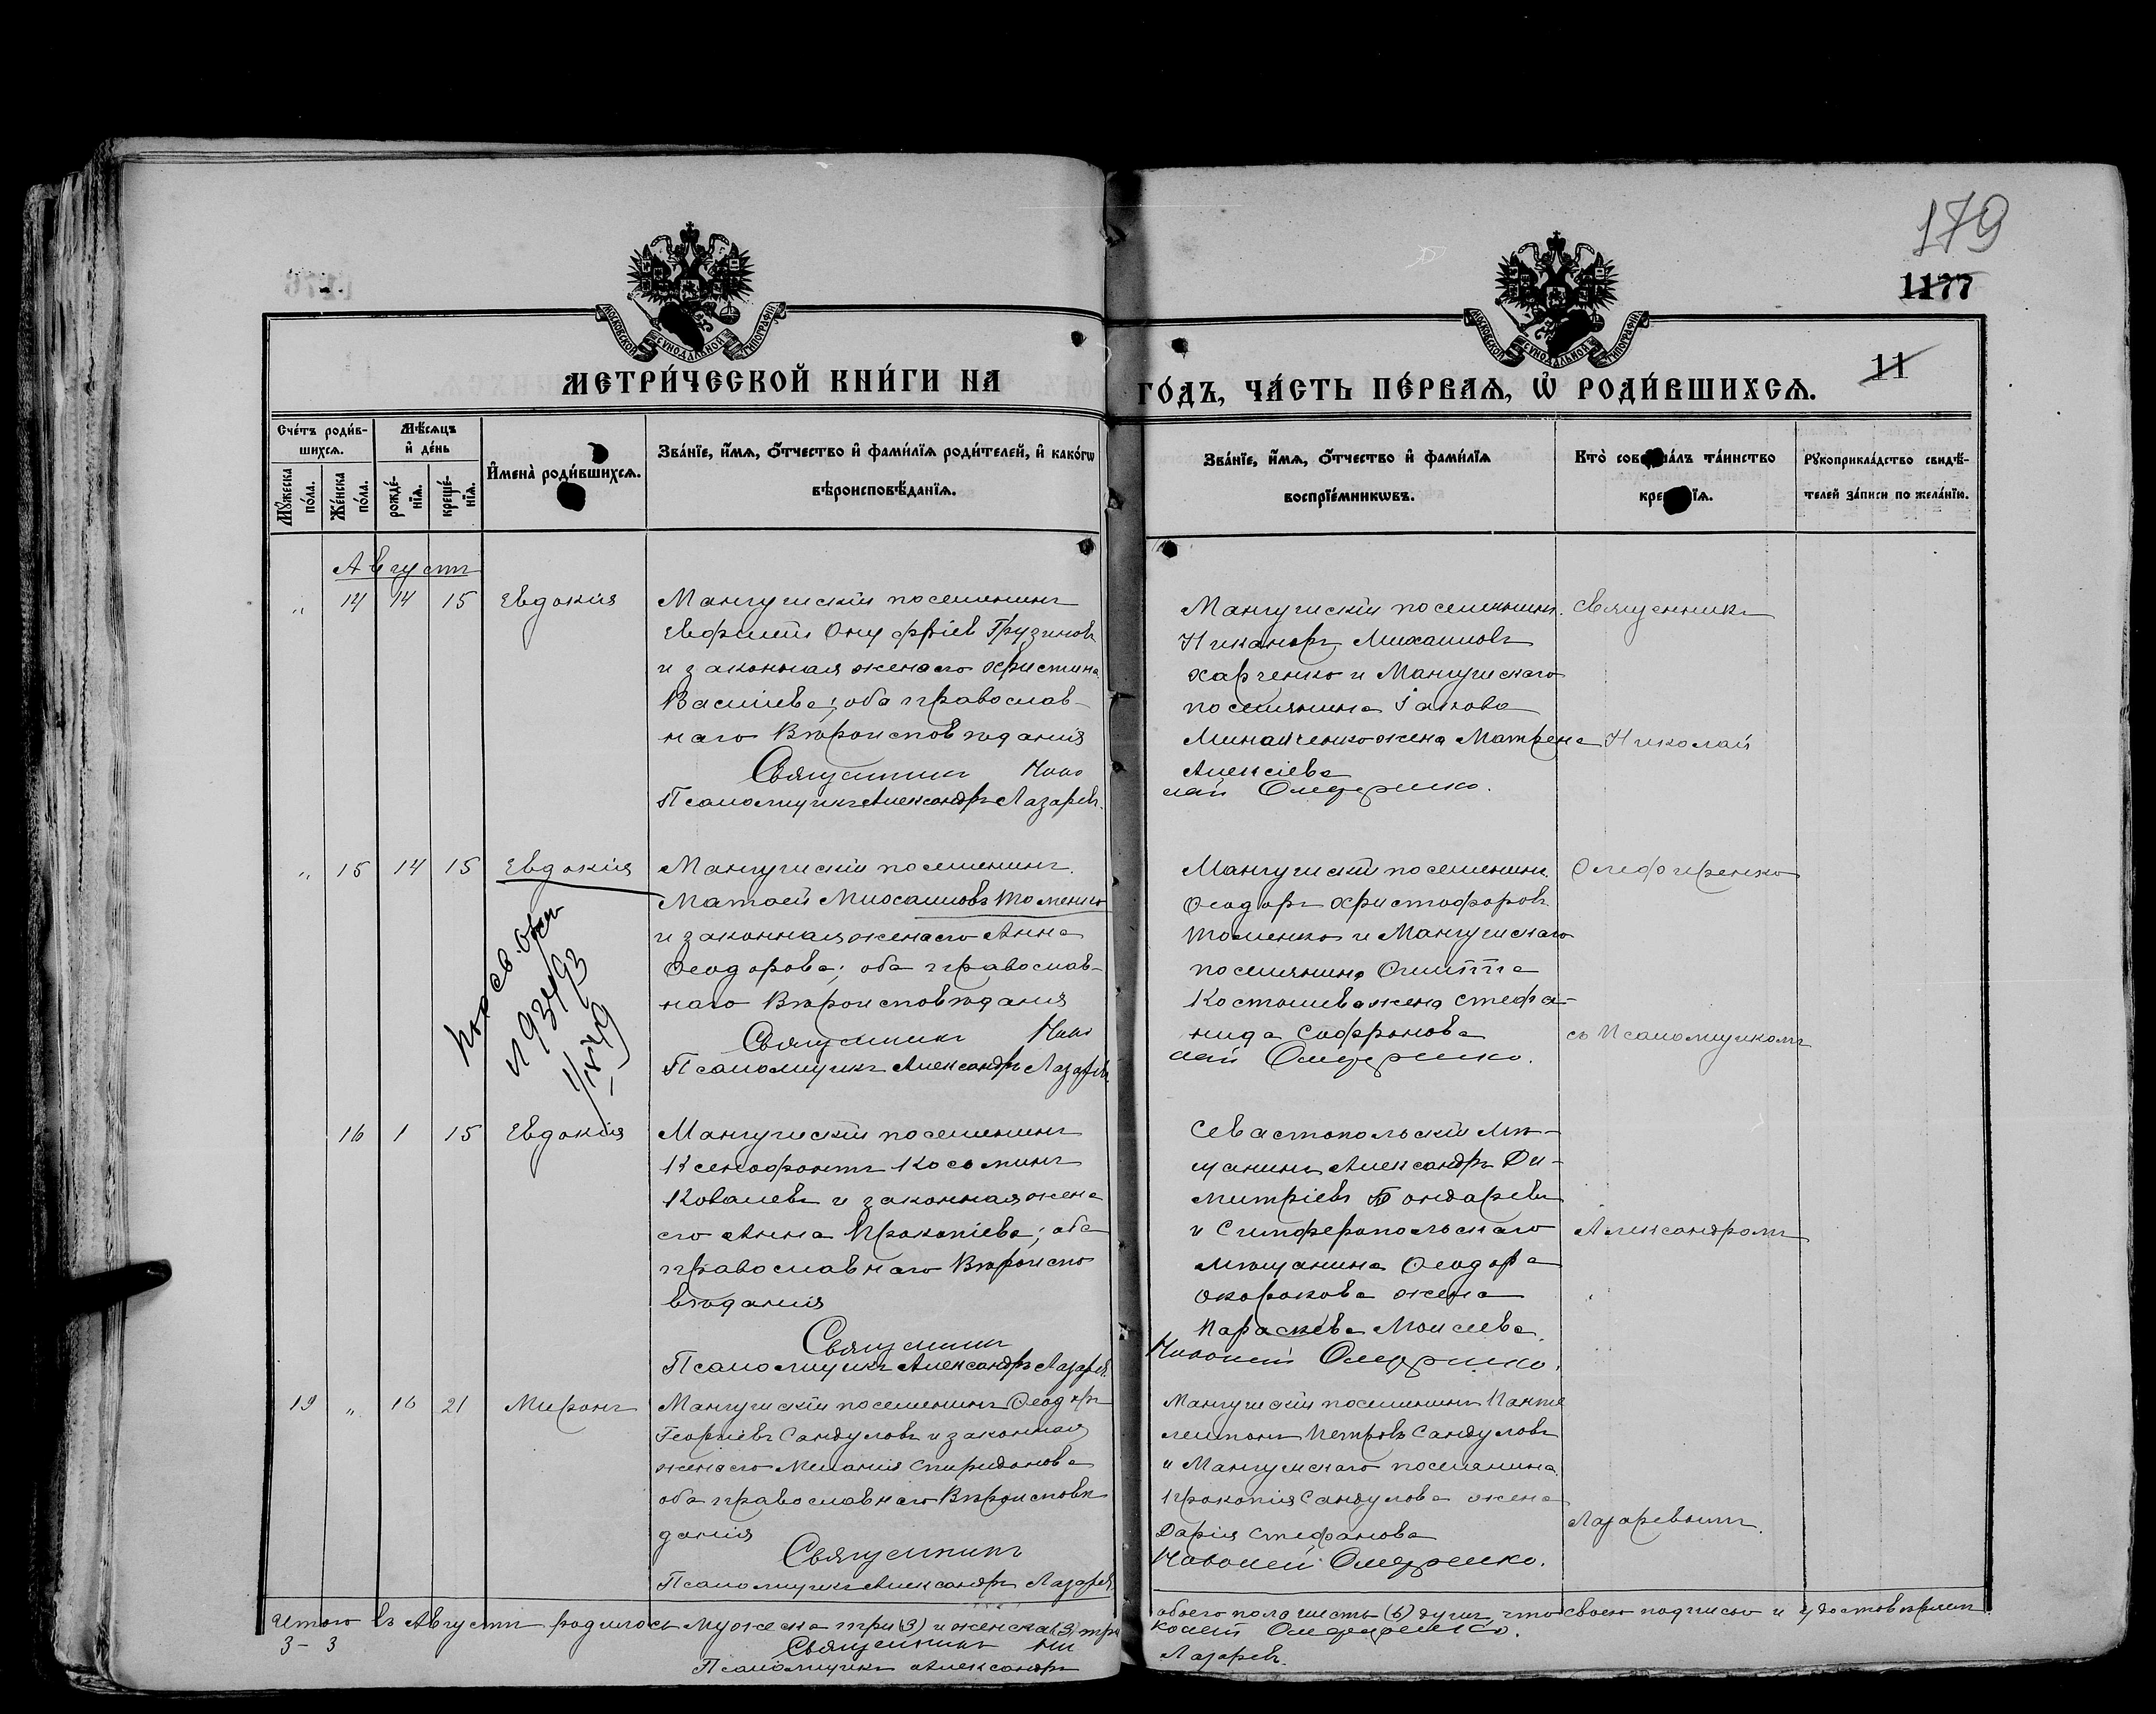 179
1177
11
МОСКОВСКОЙ СУНОДАЛЬНОЙ ТИПОГРАФІИ
МОСКОВСКОЙ СУНОДАЛЬНОЙ ТИПОГРАФІИ
МЕТРИ́ЧЕСКОЙ КНИ́ГИ НА ГО́ДЪ, ЧА́СТЬ ПЕ́РВАѦ, Ѡ҆ РОДИ́ВШИХСѦ.
Сче́тъ роди́в-
шихсѧ.
Мꙋ́жеска по́ла.
Же́нска по́ла.
Мѣ́сѧцъ
и҆ де́нь
рожде́-нїѧ.
креще́-нїѧ.
И҆мена̀ роди́вшихсѧ.
Зва́нїе, и҆́мѧ, о҆́тчество и҆ фами́лїѧ роди́телей, и҆ како́гѡ
вѣроисповѣ́данїѧ.
Зва́нїе, и҆́мѧ, о҆́тчество и҆ фами́лїѧ
воспрїе́мникѡвъ.
Кто̀ соверша́лъ та́инство
креще́нїѧ.
Рꙋкоприкла́дство свидѣ́-
телей за́писи по жела́нїю.
Августъ
„ 14 14 15 Евдокія
Мангушскій поселянинъ
Евфимій Онуфріев Грузиновъ
и законная жена его Христина
Василіева; оба православ-
наго Вѣроисповѣданія
Священникъ Нико
Псаломщикъ Александръ Лазаревъ.
Мангушскій поселянинъ
Никаноръ Михаиловъ
Харченко и Мангушскаго
поселянина Іакова
Минайченко жена Матрена
Алексіева
лай Олеференко.
Священникъ
Николай
„ 15 14 15 Евдокія
Мангушскій поселянинъ
Матѳей Михаиловъ Томенко
и законная жена его Анна
Ѳеодорова; оба православ-
наго Вѣроисповѣданія
Священникъ Нико
Псаломщикъ Александръ Лазаревъ
Мангушскій поселянинъ
Ѳеодоръ Христофоровъ
Томенко и Мангушскаго
поселянина
Костышева жена Стефа-
нида Софронова
лай Олеференко.
Олефференко
съ Псаломщикомъ
16 1 15 Евдокія
Мангушскій поселянинъ
Ксенофонтъ Косьминъ
Ковалевъ и законная жена
его Анна Прокопіева; оба
православнаго Вѣроиспо
вѣданія
Священникъ
Псаломщикъ Александръ Лазаревъ.
Севастопольскій Мѣ-
щанинъ Александръ Ди-
митріевъ Бондаревъ
и Симферопольскаго
мѣщанина Ѳеодора
Окорокова жена
Параскева Моисеева.
Николай Олеференко.
Александромъ
19 „ 16 21 Миронъ
Мангушскій поселянинъ Ѳеодоръ
Георгіевъ Сандуловъ и законная
жена его Меланія Спиридонова
оба православнаго Вѣроисповѣ
данія
Священникъ
Псаломщикъ Александръ Лазаревъ
Мангушскій поселянинъ Панте
леимонъ Петровъ Сандуловъ
и Мангушскаго поселянина
Прокопія Сандулова жена
Дарія Стефанова
Николай Олеференко.
Лазаревымъ.
Итого въ Августѣ родилось мужеска три (3) и женска (3) три обоего пола шесть (6) душъ, что своею подписью и удостовѣряемъ
3 - 3
Священникъ Ни колай Олеференко.
Псаломщикъ Александръ Лазаревъ.